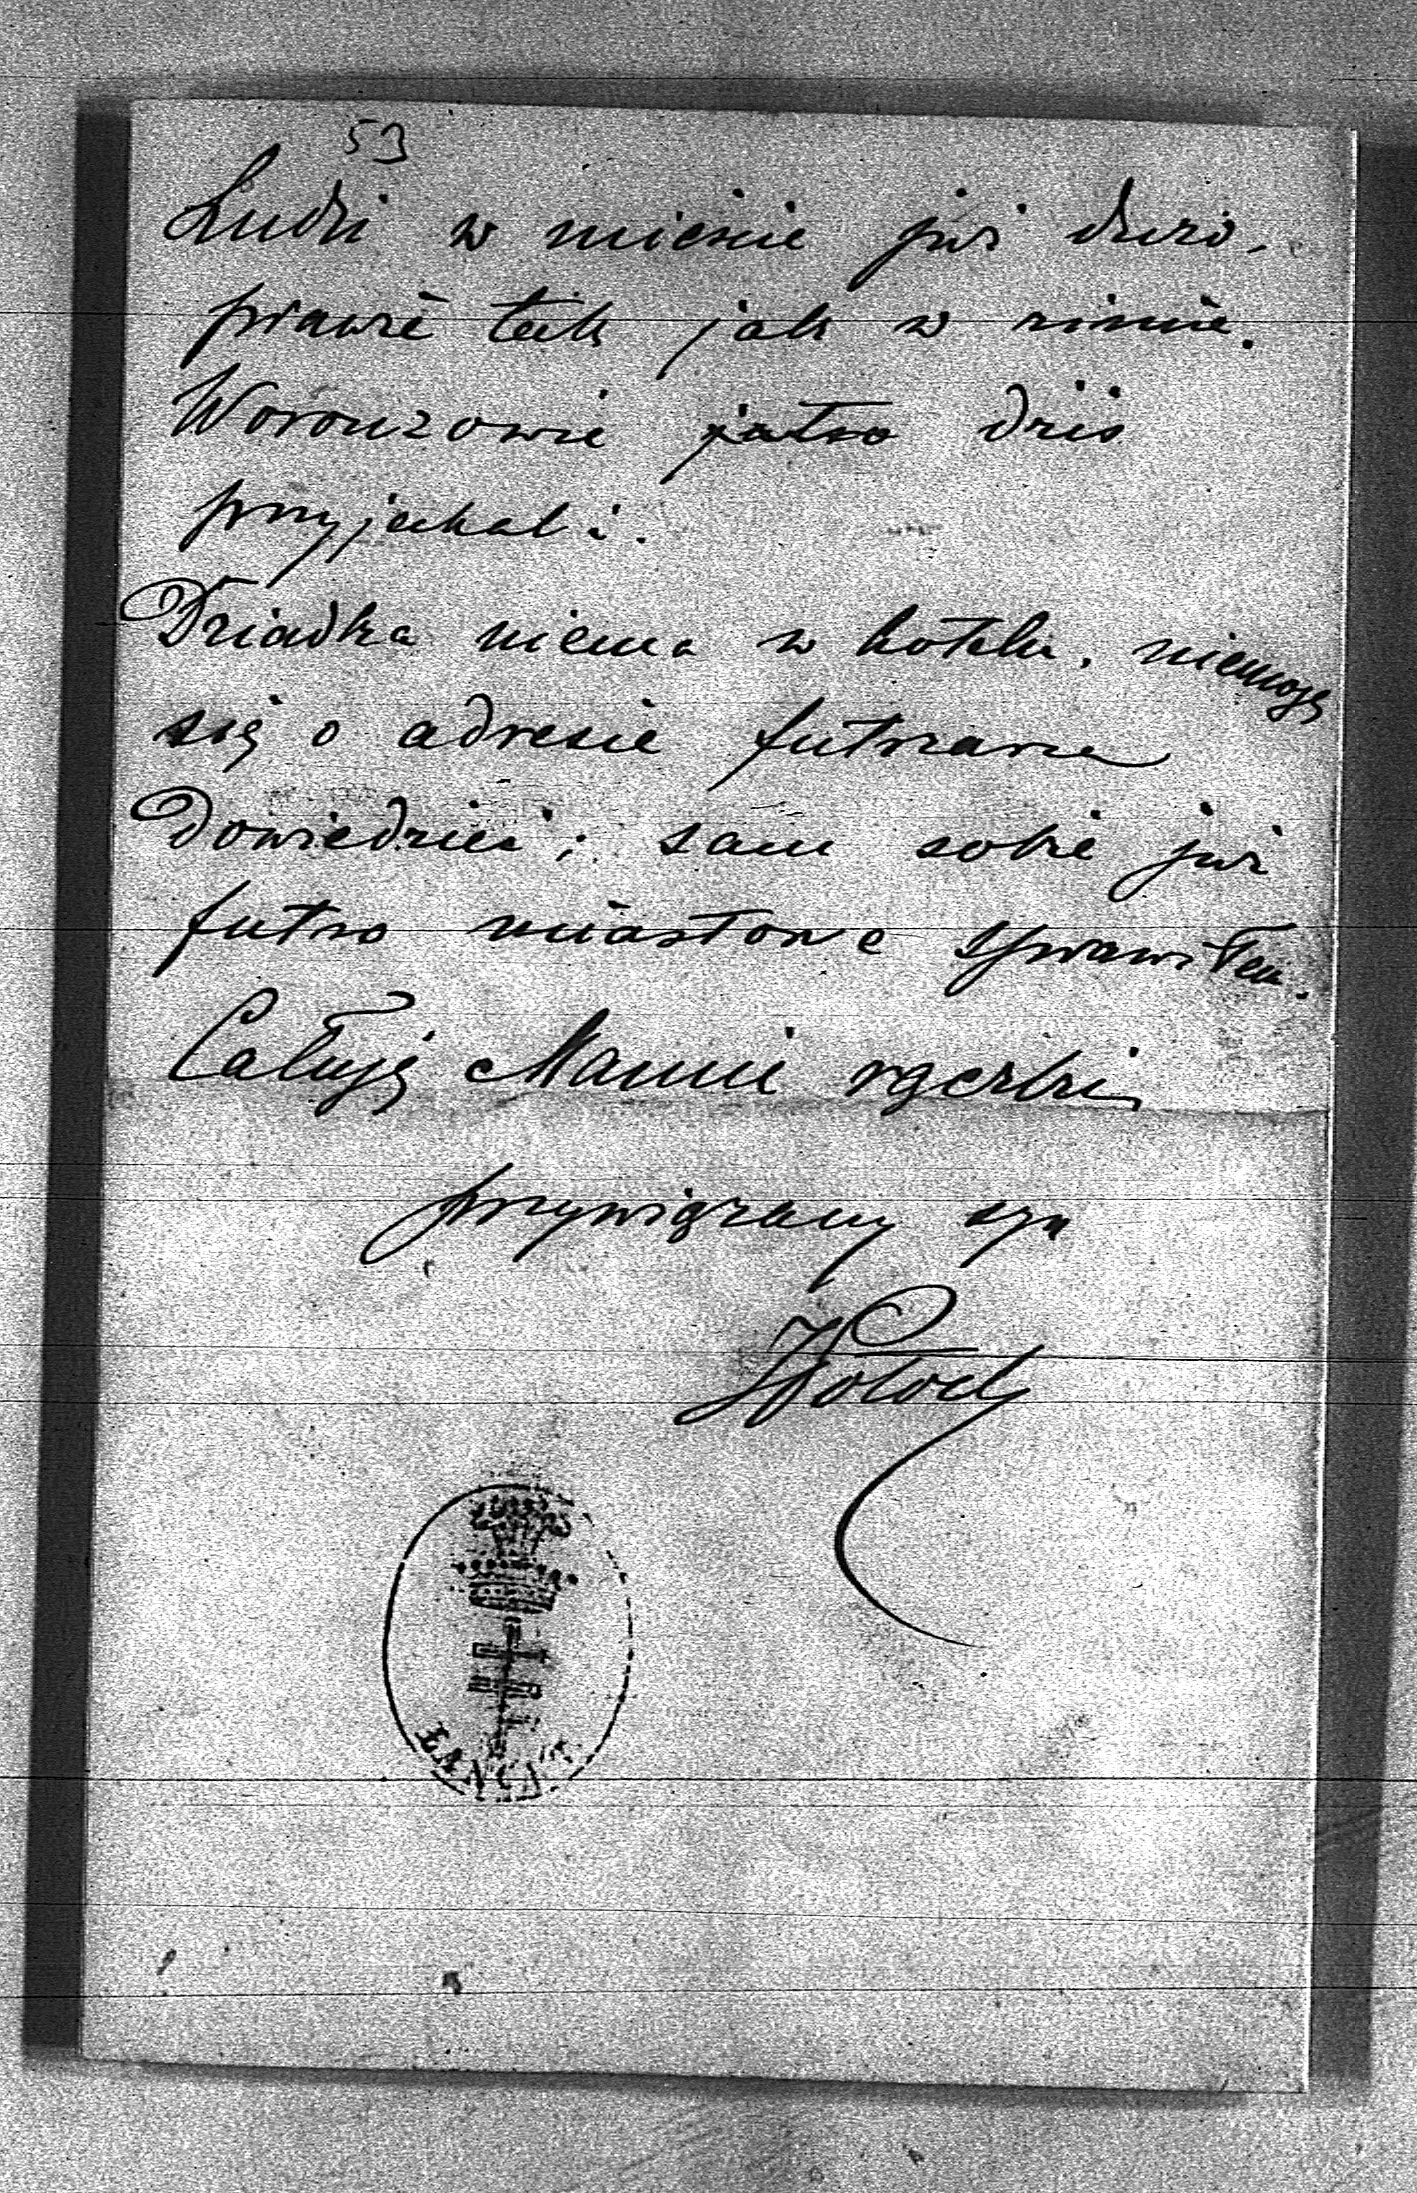 53
Ludzi w mieście już dużo,
prawie tak jak w zimie.
Woronzowie jutro dziś
przyjechali.
Dziadka niema w hotelu, niemogę
się o adresie futrzarza
dowiedzieć; sam sobie już
futro miastowe sprawiłem.
Całuję Mamie rączki
przywiązany syn
RPotocki
ŁAŃCUT